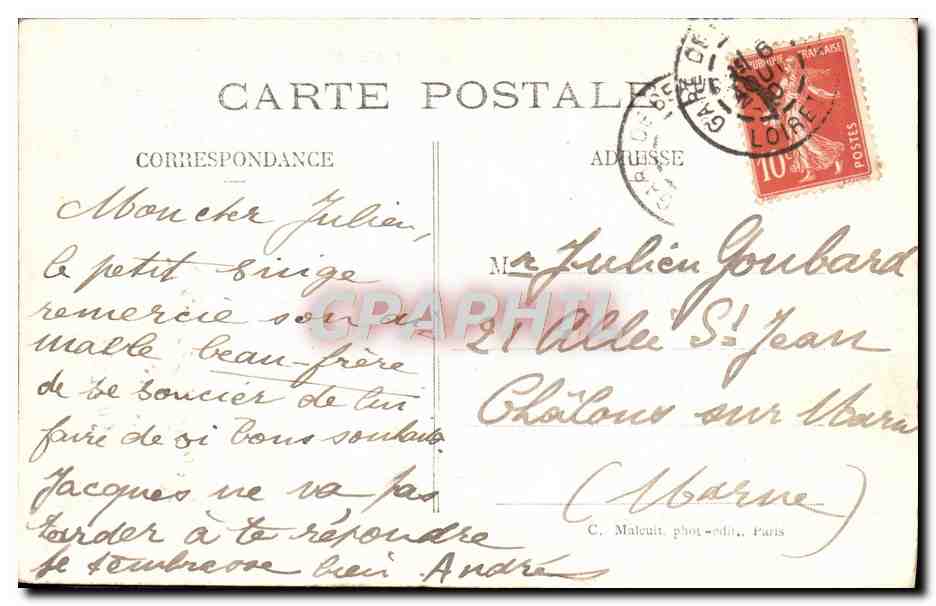 CARTE POSTALE
CORRESPONDANCE
Mon cher Julien,
le petit singe
remercie son ai-
mable beau-frère
de se soucier de lui
faire de si bons souhaits.
Jacques ne va pas
tarder à te répondre
Je t'embrasse bien André
ADRESSE
Mr Julien Goubard
21 Allée St Jean
Châlons sur Marne
(Marne)
C. Malcuit, phot-édit., Paris
REPUBLIQUE FRANÇAISE
10c POSTES
GARE DE
LOIRET
GARE DE
CPAPHIL